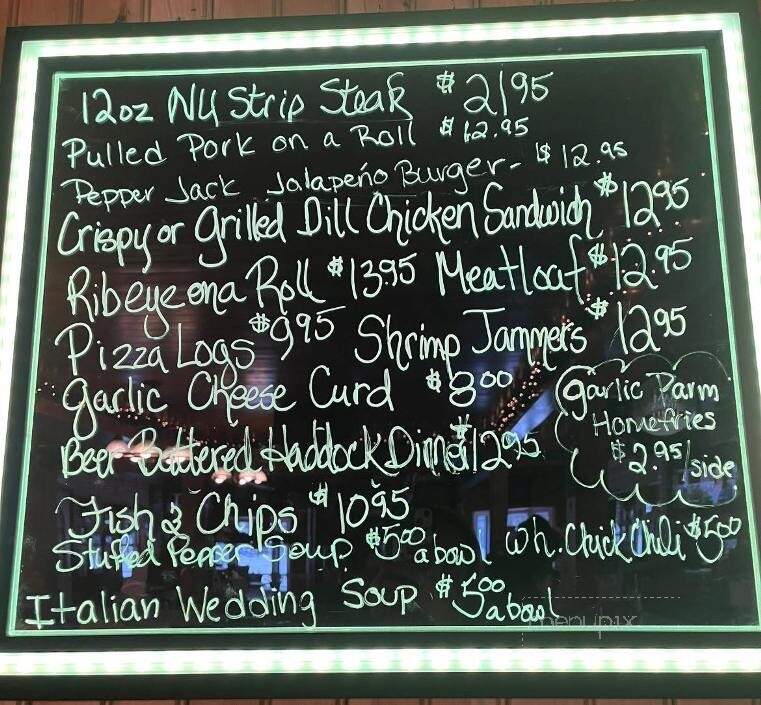 12oz NY Strip Steak $21.95
Pulled Pork on a Roll $12.95
Pepper Jack Jalapeño Burger - $12.95
Crispy or Grilled Dill Chicken Sandwich $12.95
Ribeye on a Roll $13.95 Meatloaf $12.95
Pizza Logs $9.95 Shrimp Jammers $12.95
Garlic Cheese Curd $8.00
Garlic Parm
Homefries
$2.95/side
Beer Battered Haddock Dinner $12.95
Fish & Chips $10.95
Stuffed Pepper Soup $5.00 a bowl Wh. Chick Chili $5.00
Italian Wedding Soup $5.00 a bowl
menupix